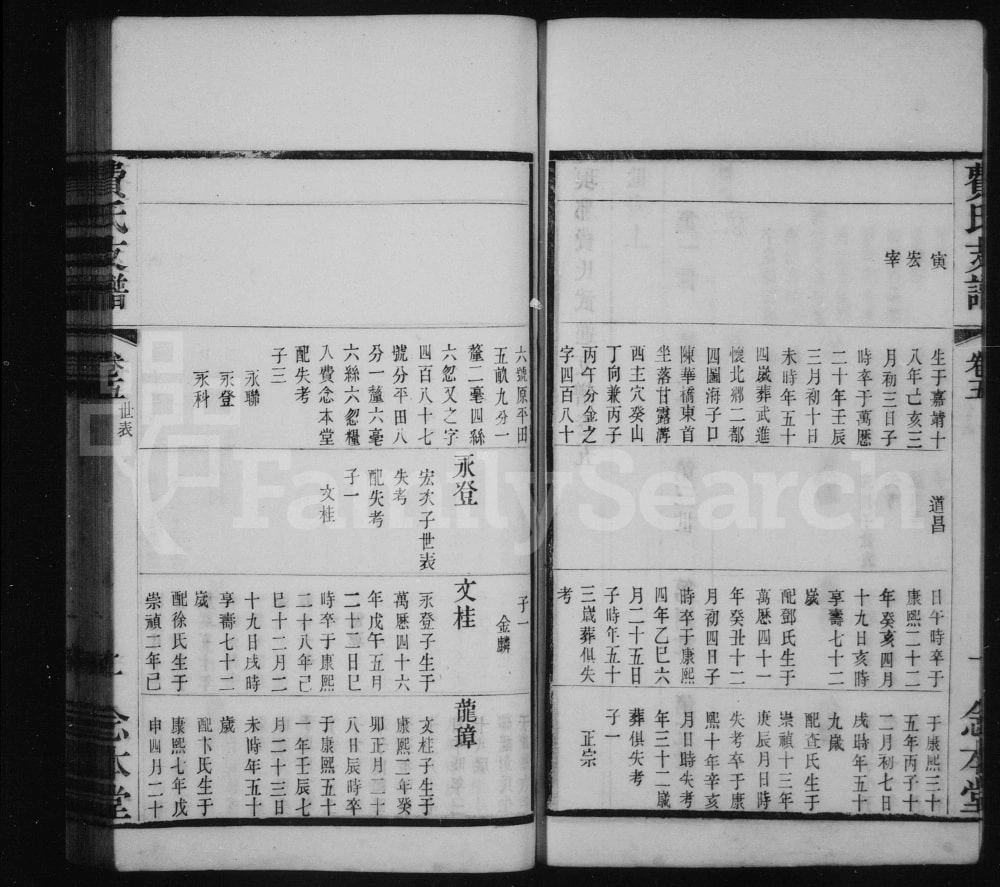 費氏支譜
卷五
一
念本堂
寅
宏
宰
生于嘉靖十
八年亡亥三
月初三日子
時卒于萬厯
二十年壬辰
三月初十日
未時年五十
四歲葬武進
懷北鄉二都
四圖海子口
陳華橋東首
坐落甘露溝
酉主穴癸山
丁向兼丙子
丙午分金之
字四百八十
道昌
日午時卒于
康熙二十二
年癸亥四月
十九日亥時
享壽七十二
歲
配鄧氏生于
萬厯四十一
年癸丑十二
月初四日子
時卒于康熙
四年乙巳六
月二十五日
子時年五十
三歲葬俱失
考
于康熙三十
五年丙子十
二月初七日
戌時年五十
九歲
配查氏生于
崇禎十三年
庚辰月日時
失考卒于康
熙十年辛亥
月日時失考
年三十二歲
葬俱失考
子一
正宗
六號原平田
五畝九分一
釐二毫四絲
六忽又之字
四百八十七
號分平田八
分一釐六毫
六絲六忽糧
入費念本堂
配失考
子三
永聯
永登
永科
永登
宏次子世表
失考
配失考
子一
文桂
子一
金麟
文桂
永登子生于
萬厯四十六
年戊午五月
二十三日巳
時卒于康熙
二十八年己
巳十二月二
十九日戌時
享壽七十二
歲
配徐氏生于
崇禎二年己
龍璋
文桂子生于
康熙二年癸
卯正月二十
八日辰時卒
于康熙五十
一年壬辰七
月二十三日
未時年五十
歲
配卞氏生于
康熙七年戊
申四月二十
費氏支譜
卷五
世表
念本堂
FamilySearch